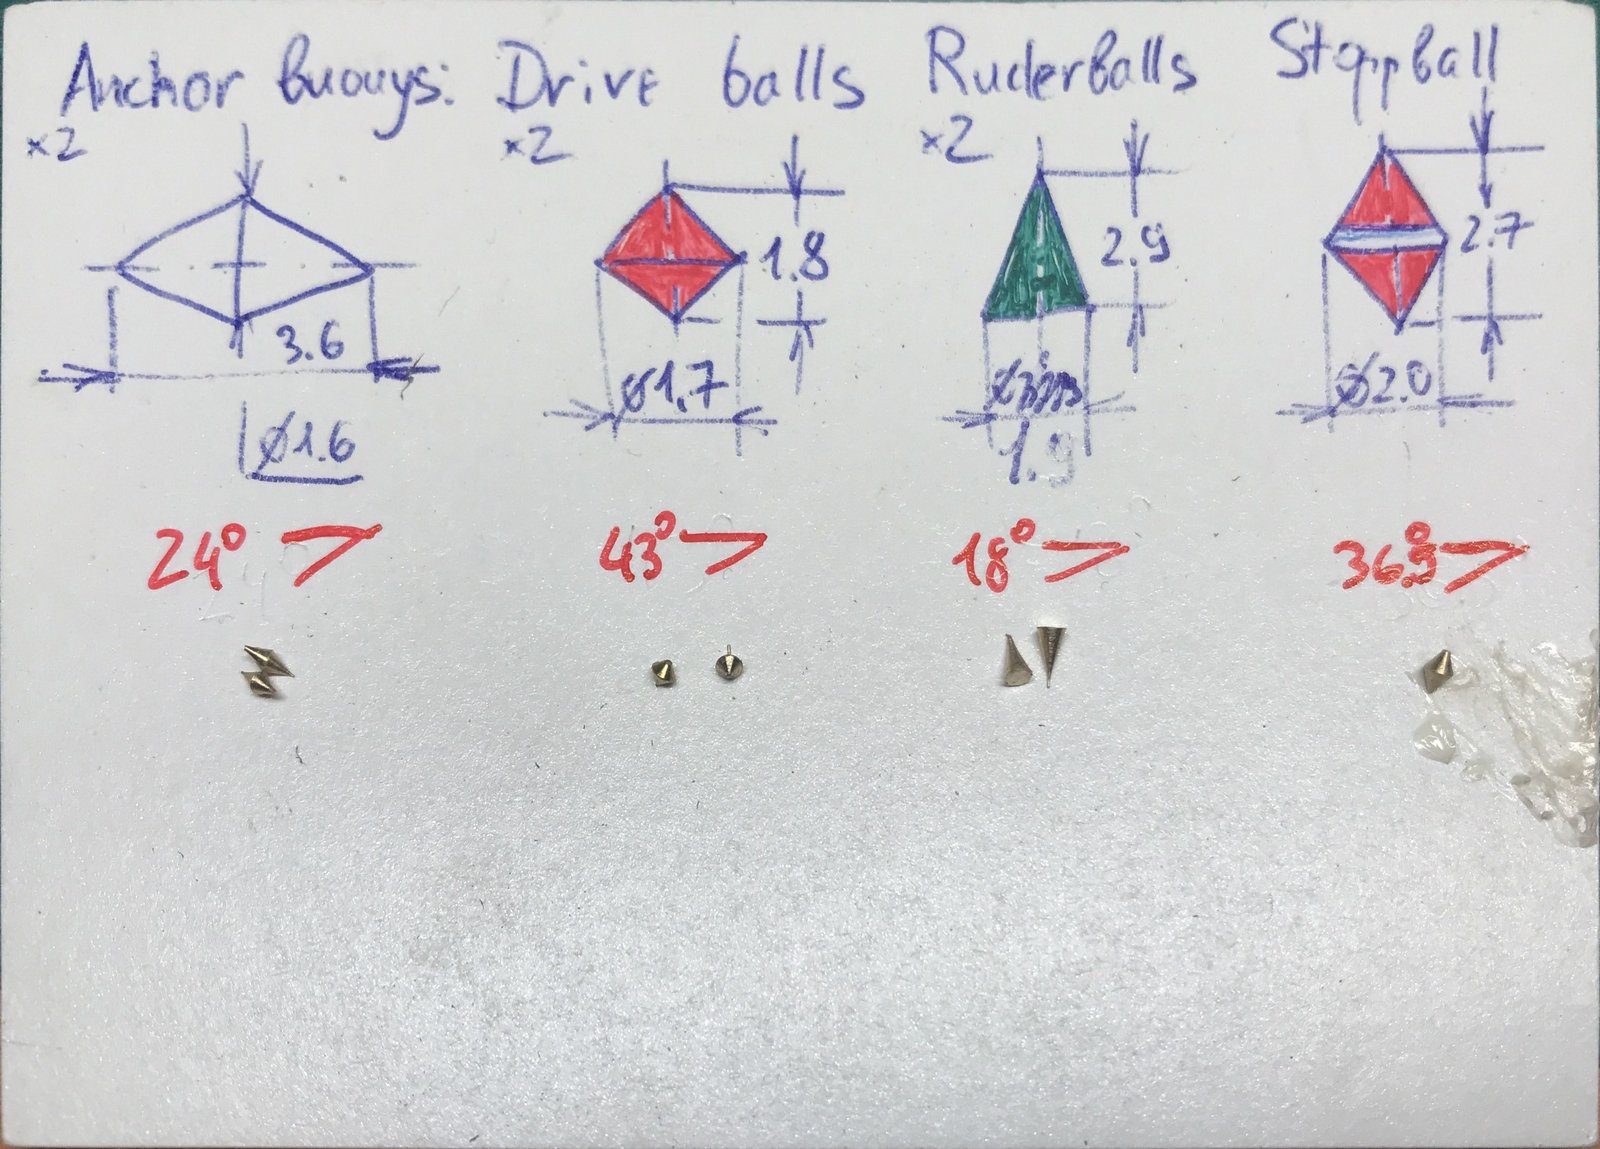 Anchor buouys: Drive balls Ruderballs Stoppball
×2 ×2 ×2
3.6 1.8 2.9 2.7
ø1.6 ø1.7 1.9 ø2.0
24° > 43° > 18° > 36.9° >